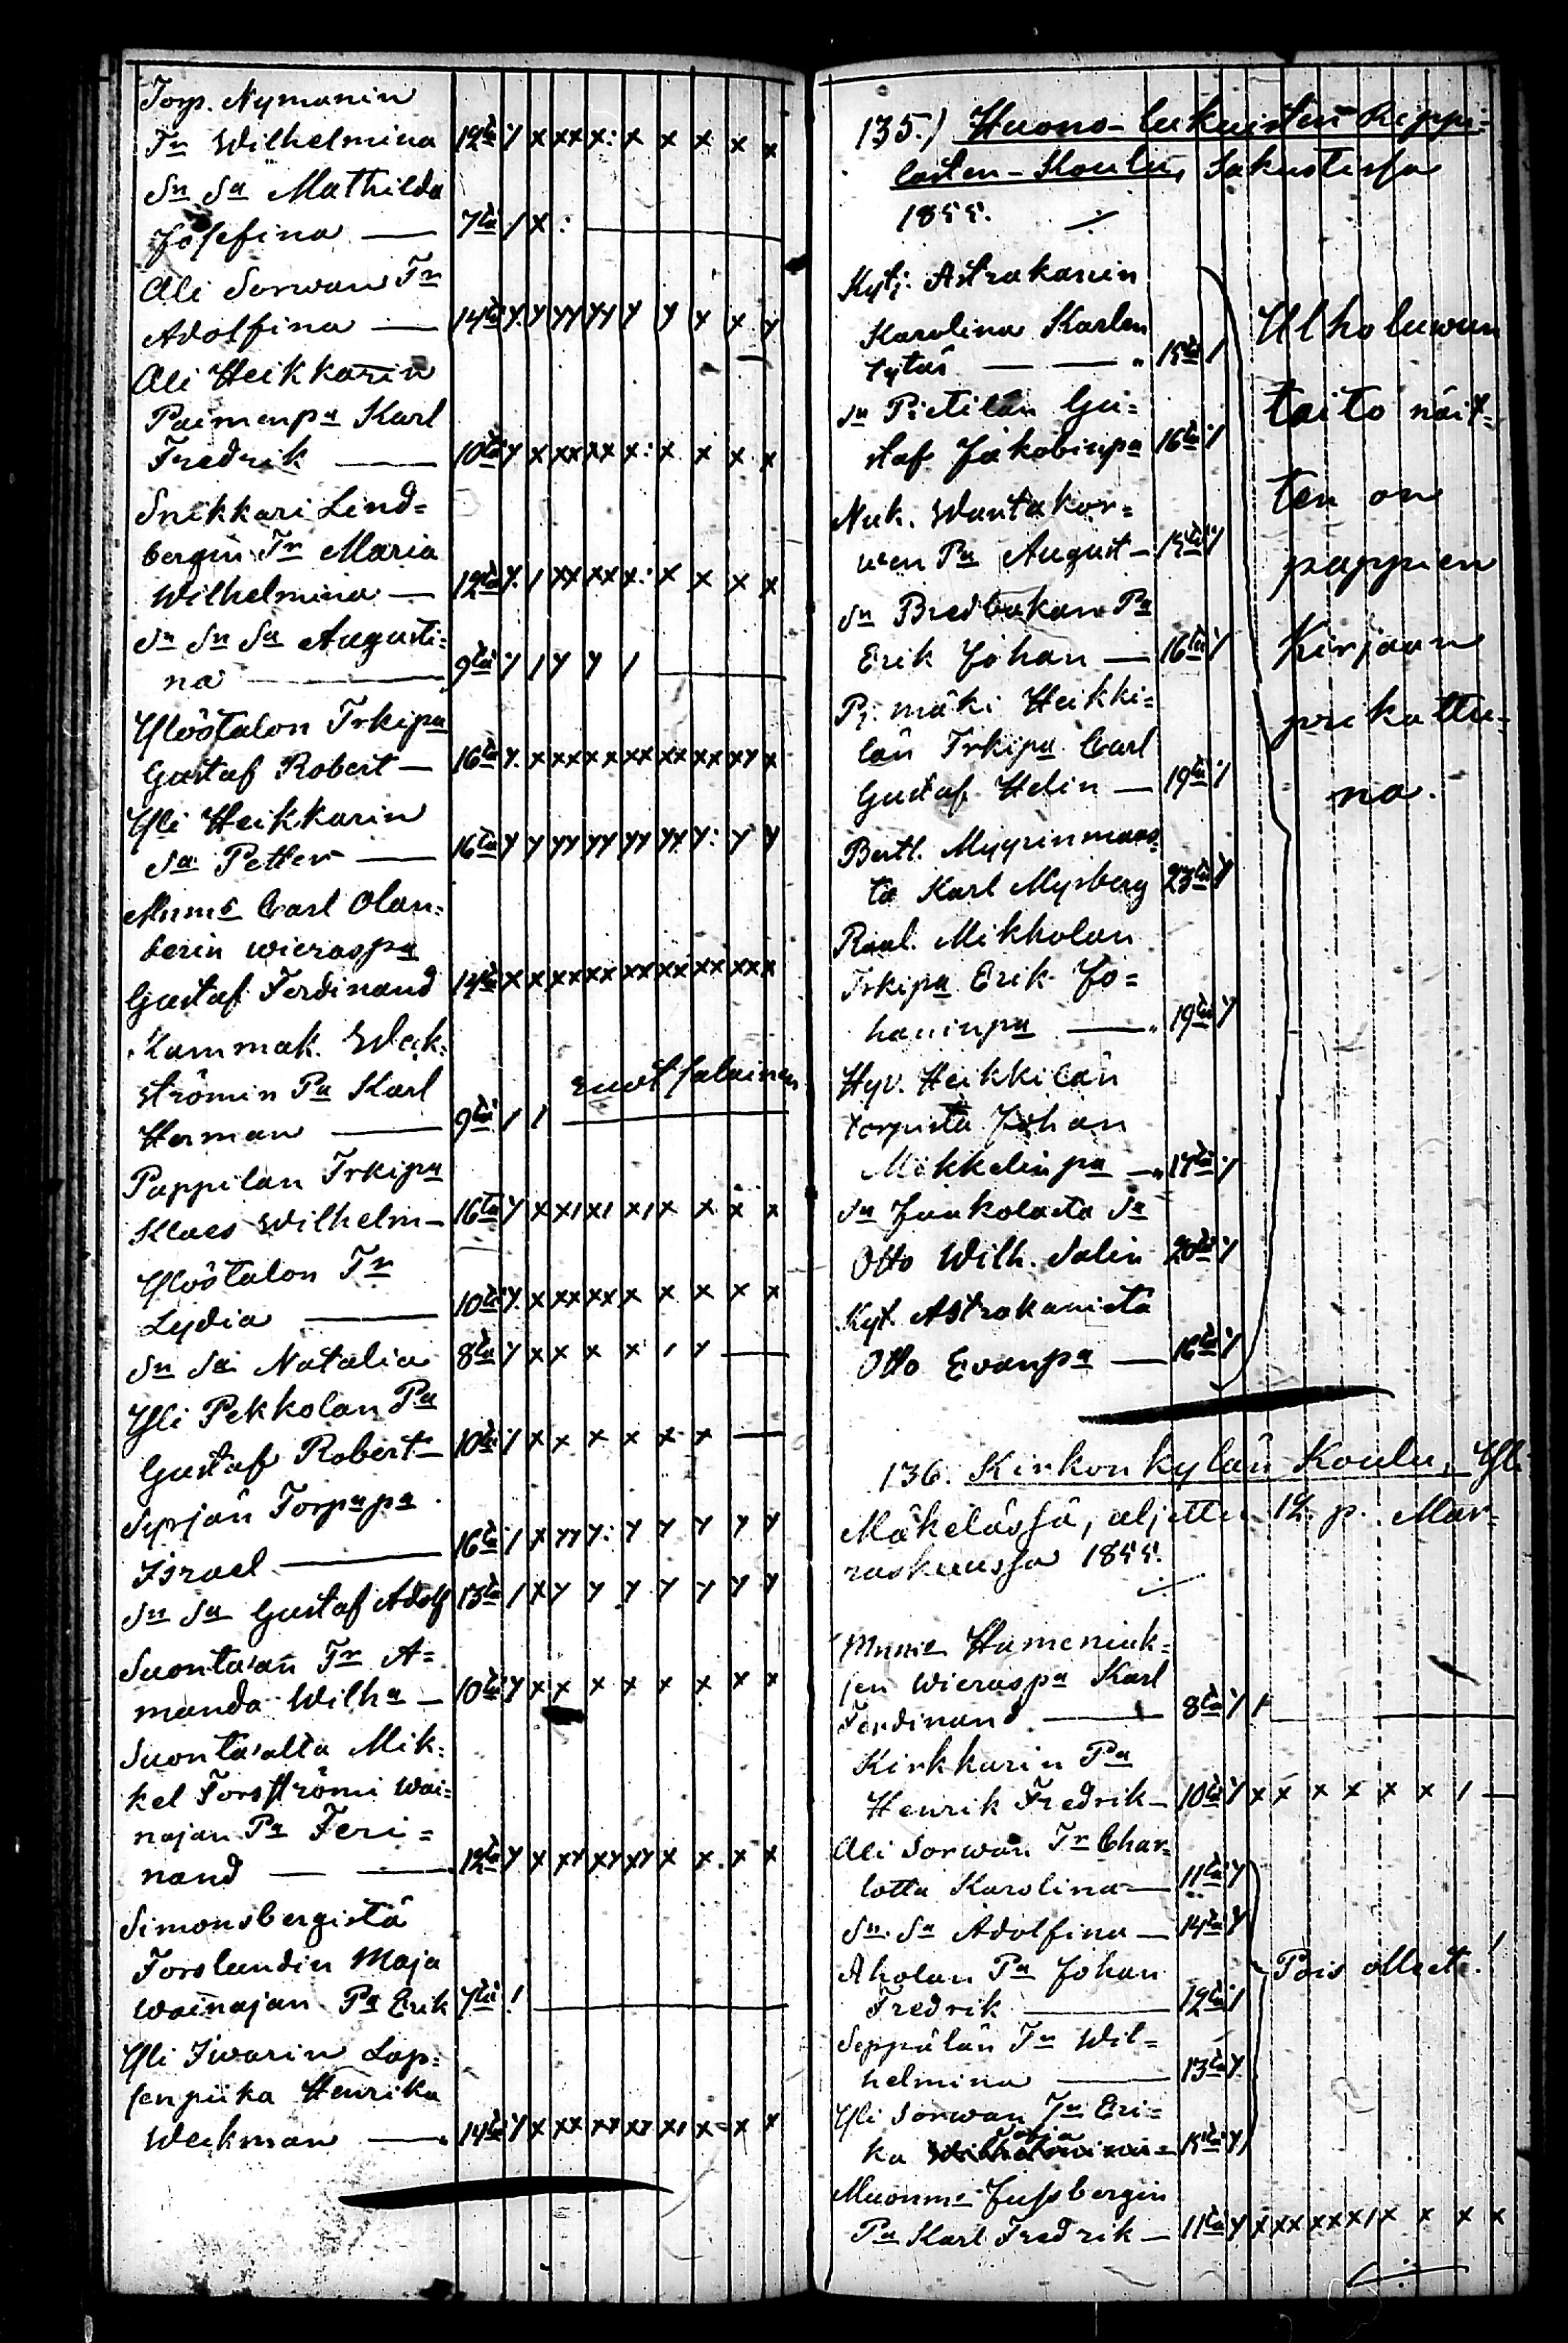 Torp. Nymanin
Tr Wilhelmina 12ta y x xx x: x x x x x
Sn Sa Mathilda
Josefina — 7ta / x :
Ali Sorwan Tr
Adolfina — 14ta y. y yy yy y y y x y
Ali Heikkarin
Paimenpa Karl
Fredrik — 10ta y x xx xx x: x x x x
Snikkari Lind=
bergin Tr Maria
Wilhelmina — 12ta y. / xx xx x: x x x x
Sn Sn Sa Augusti=
na — 9ta y / y y /
Ylöstalon Trkipa
Gustaf Robert — 16ta y. x xx x x xx xx xx xy x
Yli Heikkarin
Sa Petter — 16ta y y yy yy yy yy y: y y
Carl Olan=
derin wieraspa
Gustaf Ferdinand 14ta x x xx xx xx xx xx xx x
Kammak. Wek=
strömin Pa Karl
Herman — 9ta / /
Pappilan Trkipa
Klaes Wilhelm — 16ta y x x/ x/ x/ x x x x
Ylöstalon Tr
Lydia — 10ta y. x xx xx x x x x x
Sn Sa Natalia 8ta y x x x x / y —
Yli Pekkolan Pa
Gustaf Robert — 10ta / x x x x x x —
Syrjän Torpapa
Israel — 16ta / x yy y: y y y y y
Sn Sa Gustaf Adolf 13ta / x y y y y y y y
Suontaan Tr A=
manda Wilha — 10ta y x x x x x x x x
Suontaalta Mik=
kel Forsströmi wai=
najan Pa Feri=
nand — 12ta y x xy xy xy x x. x x
Simonsbergistä
Forslundin Maja
wainajan Pa Erik 7ta /
Yli Iiwarin Lap=
senpiika Henrika
Wekman — 14ta y x xx xx xx x/ x x x
135.) Huono-lukuisten Rippi=
lasten-Koulu, Sakustissa
1855.
Kyt: Astrakanin
Karolina Karlen
tytär — 15ta /
Sn Pietilän Gu=
staf Jakobinpa 16ta y
Wantakor=
wen Pa August — 15ta y
Sn Bredbakan Pa
Erik Johan — 16ta y
Pj: mäki Heikki=
län Trkipa Carl
Gustaf Helin — 19ta y
Bertl. Myyrinmaas=
ta Karl Myrberg 23ta y
Raul. Mikholan
Trkipa Erik Jo=
haninpa — 19ta y
Hyv. Heikkilän
torpista Johan
Mikkelinpa — 17ta y
Sn Junkolasta Sa
Otto Wilh. Salin 20ta y
Kyt. Astrakanista
Otto Evanpa — 16ta y
Ulholuwun
taito näit=
ten on
pappien
Kirjaan
prikattu=
na.
136. Kirkonkylän Koulu, Yli
Mäkelässä, aljettu 12. p. Mar=
raskuussa 1855.
Hameniuk=
sen wieraspa Karl
Ferdinand — 8ta y /
Kirkkarin Pa
Henrik Fredrik — 10ta y x x x x x x / —
Ali Sorwan Tr Char=
lotta Karolina — 11ta y
Sn. Sa Adolfina — 14ta y
Aholan Pa Johan
Fredrik — 12ta /
Seppälän Tr Wil=
helmina — 13ta y
Yli Sorwan Tr Eri=
ka — 15ta y
Pois olleet!
Jussbergin
Pa Karl Fredrik — 11ta y x xx xx x/ x x x x